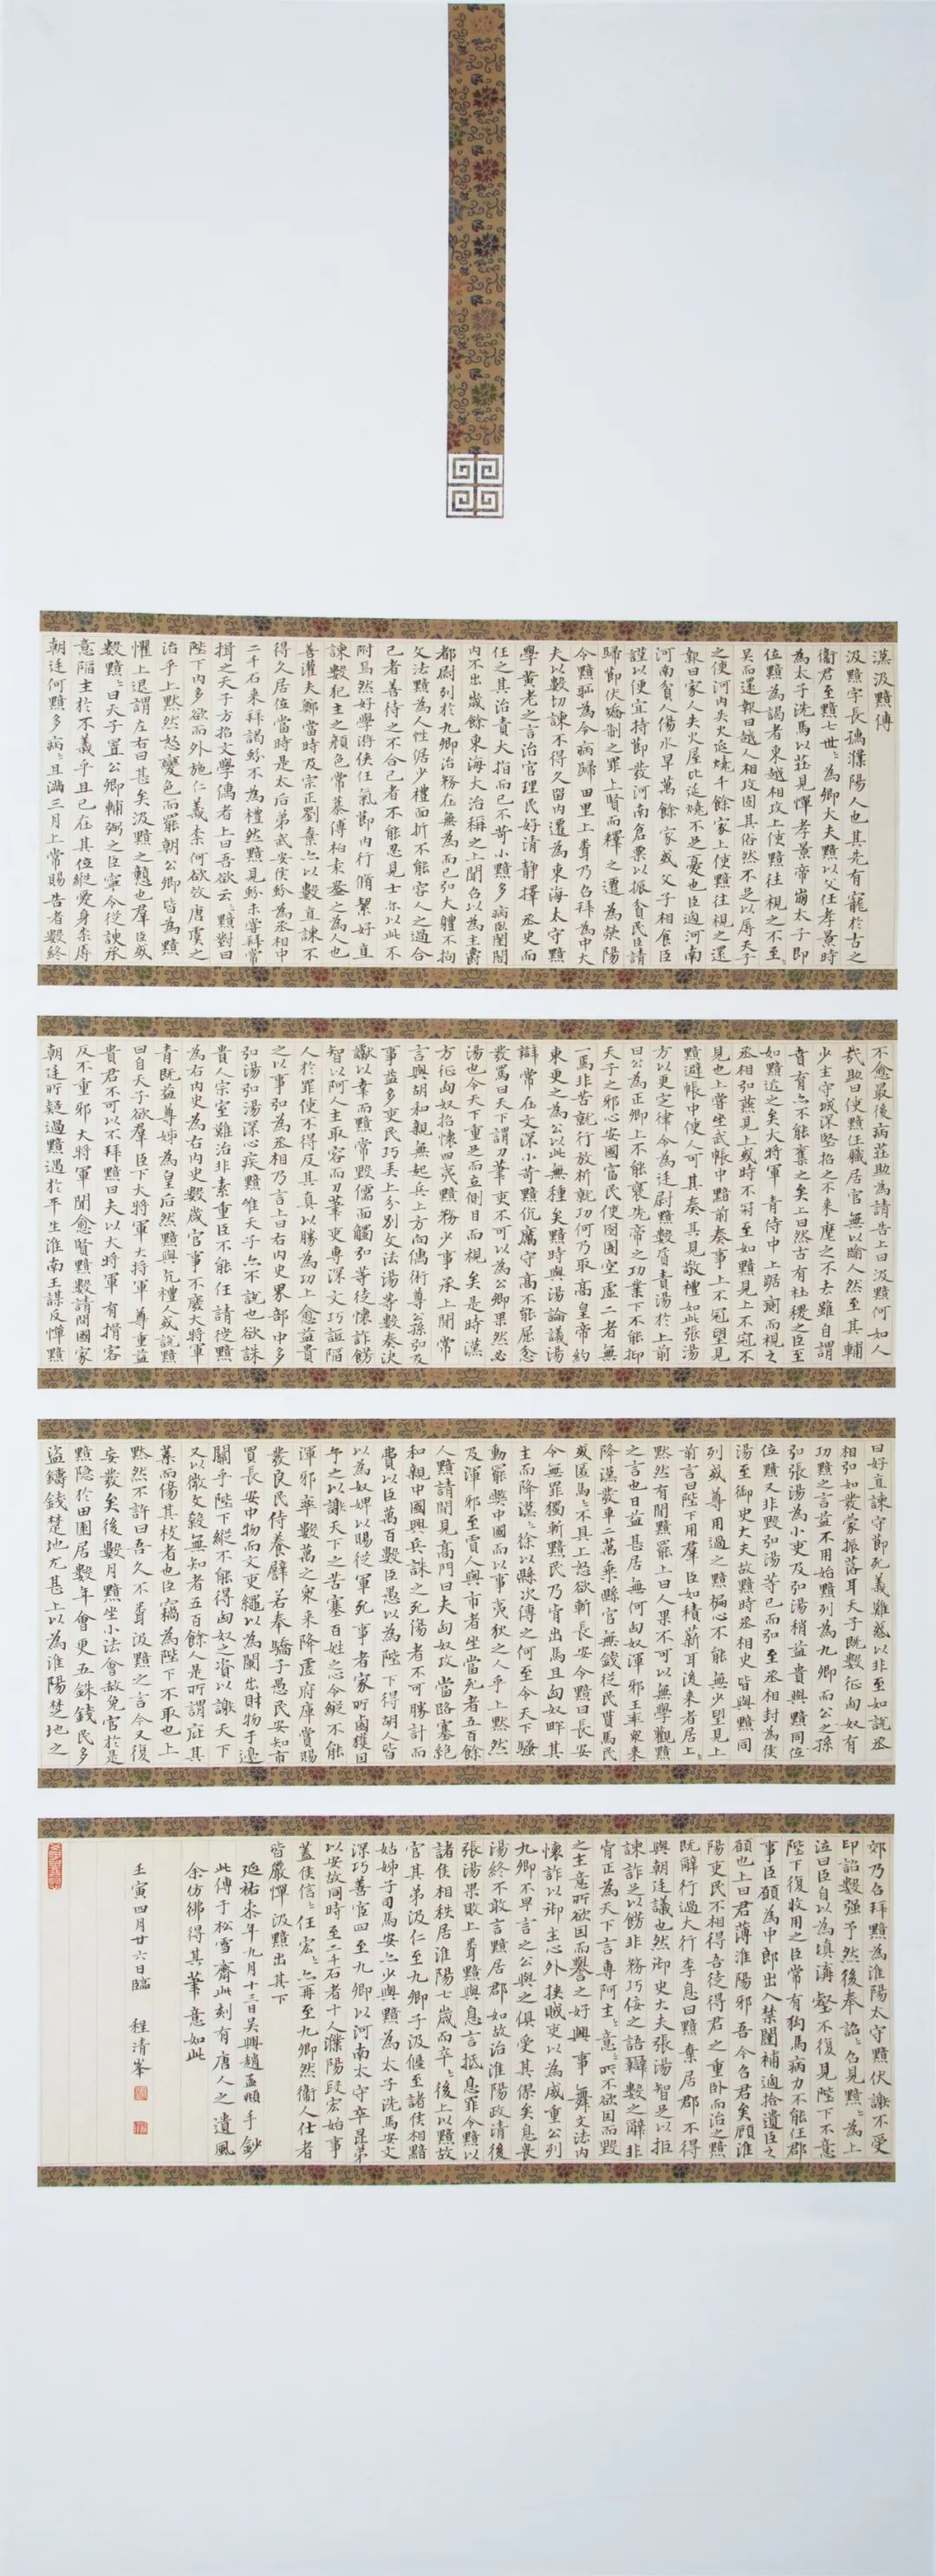 漢汲黯傳
汲黯字長孺濮陽人也其先有寵於古之
衛君至黯七世〻為卿大夫黯以父任孝景時
為太子洗馬以莊見憚孝景帝崩太子即
位黯為謁者東越相攻上使黯往視之不至〻
吴而還報曰越人相攻固其俗然不足以辱天子
之使河内失火延燒千餘家上使黯往視之還
報曰家人失火屋比延燒不足憂也臣過河南
河南貧人傷水旱萬餘家或父子相食臣
謹以便宜持節發河南倉粟以振貧民臣請
歸節伏矯制之罪上賢而釋之遷為滎陽
令黯恥為令病歸田里上聞乃召拜為中大
夫以數切諫不得久留内遷為東海太守黯
學黄老之言治官理民好清静擇丞史而
任之其治責大指而已不苛小黯多病臥閨閤
内不出歲餘東海大治稱之上聞召以為主爵
都尉列於九卿治務在無為而已引大體不拘
文法黯為人性倨少禮面折不能容人之過合
己者善待之不合己者不能忍見士亦以此不
附焉然好學游俠任氣節内行脩絜好直
諫數犯主之顔色常慕傅柏袁盎之為人也
善灌夫鄭當時及宗正劉棄亦以數直諫不
得久居位當時是太后弟武安侯蚡為丞相中
二千石来拜謁蚡不為禮然黯見蚡未嘗拜常
揖之天子方招文學儒者上曰吾欲云〻黯對曰
陛下内多欲而外施仁義柰何欲效唐虞之
治乎上黙然怒變色而罷朝公卿皆為黯
懼上退謂左右曰甚矣汲黯之戇也羣臣或
數黯〻曰天子置公卿輔弼之臣寧令從諛承
意陷主於不義乎且已在其位縱愛身柰辱
朝廷何黯多病〻且滿三月上常賜告者數終
不愈最後病莊助為請告上曰汲黯何如人
哉助曰使黯任職居官無以踰人然至其輔
少主守城深堅招之不来麾之不去雖自謂
賁育亦不能奪之矣上曰然古有社稷之臣至
如黯近之矣大將軍青侍中上踞廁而視之
丞相弘燕見上或時不冠至如黯見上不冠不
見也上嘗坐武帳中黯前奏事上不冠望見
黯避帳中使人可其奏其見敬禮如此張湯
方以更定律令為廷尉黯數質責湯於上前
曰公為正卿上不能襃先帝之功業下不能抑
天子之邪心安國富民使囹圄空虛二者無
一焉非苦就行放析就功何乃取高皇帝約
束更之為公以此無種矣黯時與湯論議湯
辯常在文深小苛黯伉厲守高不能屈忿
發罵曰天下謂刀筆吏不可以為公卿果然必
湯也令天下重足而立側目而視矣是時漢
方征匈奴招懷四夷黯務少事承上閒常
言與胡和親無起兵上方向儒術尊公孫弘及
事益多吏民巧弄上分别文法湯等數奏決
讞以幸而黯常毁儒面觸弘等徒懷詐飾
智以阿人主取容而刀筆吏專深文巧詆陷
人於罪使不得反其真以勝為功上愈益貴
弘湯弘湯深心疾黯唯天子亦不說也欲誅
之以事弘為丞相乃言上曰右内史界部中多
貴人宗室難治非素重臣不能任請徙黯
為右内史為右内史數歲官事不廢大將軍
青既益尊姊為皇后然黯與亢禮人或說黯
曰自天子欲羣臣下大將軍大將軍尊重益
貴君不可以不拜黯曰夫以大將軍有揖客
反不重邪大將軍聞愈賢黯數請問國家
朝廷所疑遇黯過於平生淮南王謀反憚黯
曰好直諫守節死義難惑以非至如說丞
相弘如發蒙振落耳天子既數征匈奴有
功黯之言益不用始黯列為九卿而公之孫
弘張湯為小吏及弘湯稍益貴與黯同位
黯又非毁弘湯等已而弘至丞相封為侯
湯至御史大夫故黯時丞相史皆與黯同
列或尊用過之黯褊心不能無少望見上
前言曰陛下用羣臣如積薪耳後来者居上〻
黙然有閒黯罷上曰人果不可以無學觀黯
之言也日益甚居無何匈奴渾邪王率衆来
降漢發車二萬乘縣官無錢從民貰馬民
或匿馬〻不具上怒欲斬長安令黯曰長安
令無罪獨斬黯民乃肯出馬且匈奴畔其
主而降漢〻徐以縣次傳之何至令天下騷
動罷獘中國而以事夷狄之人乎上黙然
及渾邪至賈人與市者坐當死者五百餘
人黯請閒見高門曰夫匈奴攻當路塞絶
和親中國興兵誅之死傷者不可勝計而
費以巨萬百數臣愚以為陛下得胡人皆
以為奴婢以賜從軍死事者家所鹵獲因
予之以謝天下之苦塞百姓之心今縱不能
渾邪率數萬之衆来降虛府庫賞賜
發良民侍養譬若奉驕子愚民安知市
買長安中物而文吏繩以為闌出財物于邊
關乎陛下縱不能得匈奴之資以謝天下
又以微文殺無知者五百餘人是所謂庇其
葉而傷其枝者也臣竊為陛下不取也上
黙然不許曰吾久不聞汲黯之言今又復
妄發矣後數月黯坐小法會赦免官於是
黯隐於田園居數年會更五銖錢民多
盜鑄錢楚地尤甚上以為淮陽楚地之
郊乃召拜黯為淮陽太守黯伏謝不受
印詔數强予然後奉詔〻召見黯〻為上
泣曰臣自以為填溝壑不復見陛下不意
陛下復收用之臣常有狗馬病力不能任郡
事臣願為中郎出入禁闥補過拾遺臣之
願也上曰君薄淮陽邪吾今召君矣顧淮
陽吏民不相得吾徒得君之重卧而治之黯
既辭行過大行李息曰黯棄居郡不得
與朝廷議也然御史大夫張湯智足以拒
諫詐足以飾非務巧佞之語辯數之辭非
肯正為天下言專阿主〻意〻所不欲因而毁
之主意所欲因而譽之好興事舞文法内
懷詐以御主心外挾賊吏以為威重公列
九卿不早言之公與之俱受其僇矣息畏
湯終不敢言黯居郡如故治淮陽政清後
張湯果敗上聞黯與息言抵息罪令黯以
諸侯相秩居淮陽七歲而卒〻後上以黯故
官其弟汲仁至九卿子汲偃至諸侯相黯
姑姊子司馬安亦少與黯為太子洗馬安文
深巧善宦四至九卿以河南太守卒昆弟
以安故同時至二千石者十人濮陽段宏始事
蓋侯信〻任宏〻亦再至九卿然衛人仕者
皆嚴憚汲黯出其下
延祐柒年九月十三日吴興趙孟頫手鈔
此傳于松雪齋此刻有唐人之遺風
余仿彿得其筆意如此
壬寅四月廿六日臨 程清峯